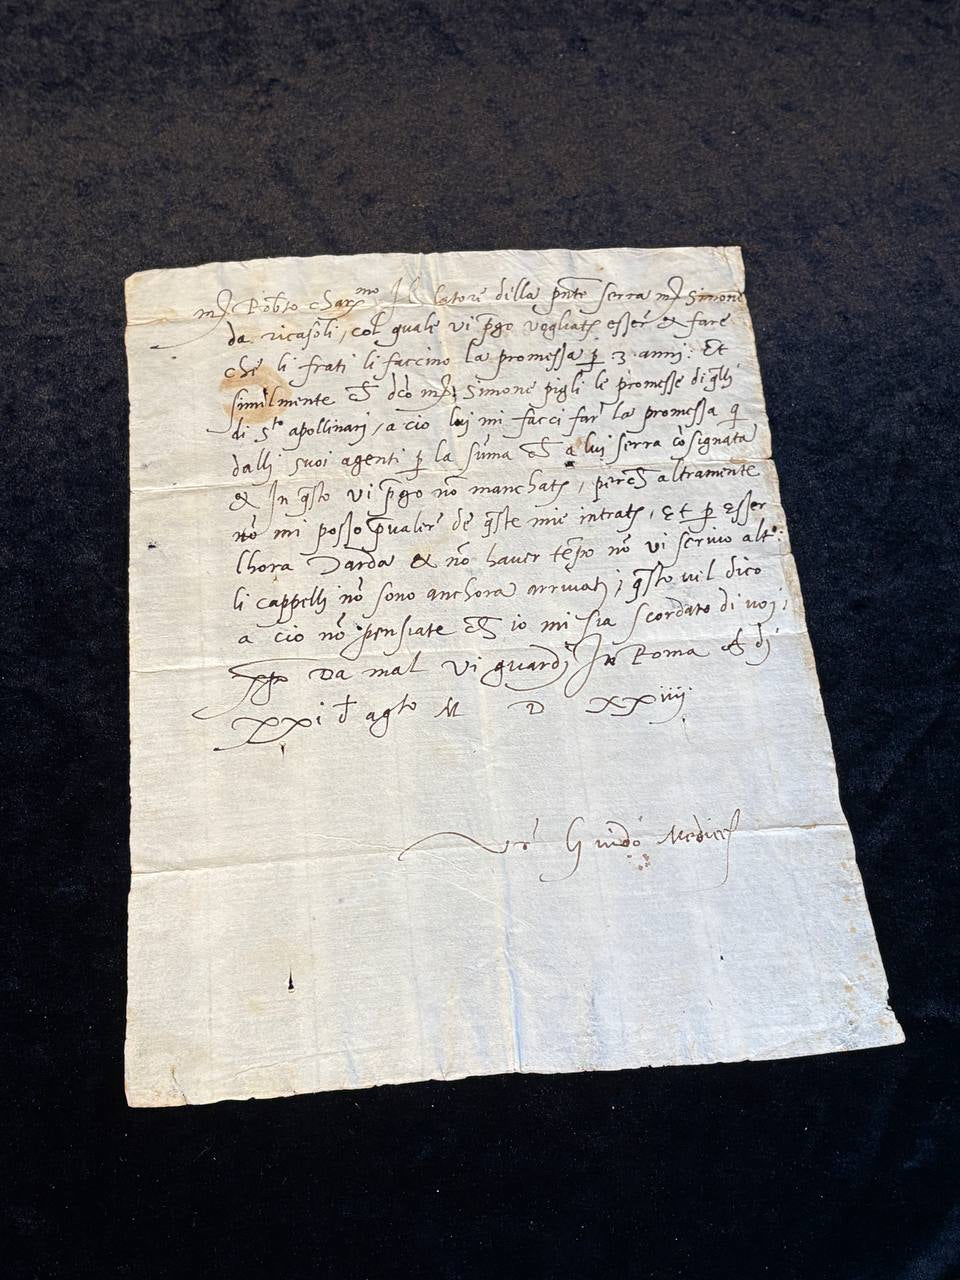 mẜ Robto charmo Il latore della pnte serra mẜ Simone
da ricasoli, col quale vi pgo vogliate esser & fare
che li frati li faccino la promessa p 3 anni: Et
similmente che dco mẜ Simone pigli le promesse di qlli
di Sto apollinari, a cio lui mi facci far la promessa q
dalli suoi agenti p la suma che a lui serra cosignata
& In qsto vi pgo no manchate, perche altramente
no mi posso pvaler de qste mie intrate, Et p esser
lhora Tarda & no haver tepo no vi scrivo alto:
li cappelli no sono anchora arrivati; qsto vil dico
a cio no pensiate che io mi sia scordato di voi;
Da mal vi guardi In Roma A dj
XXi d agto M D XXiiij
Vr Guido Medices